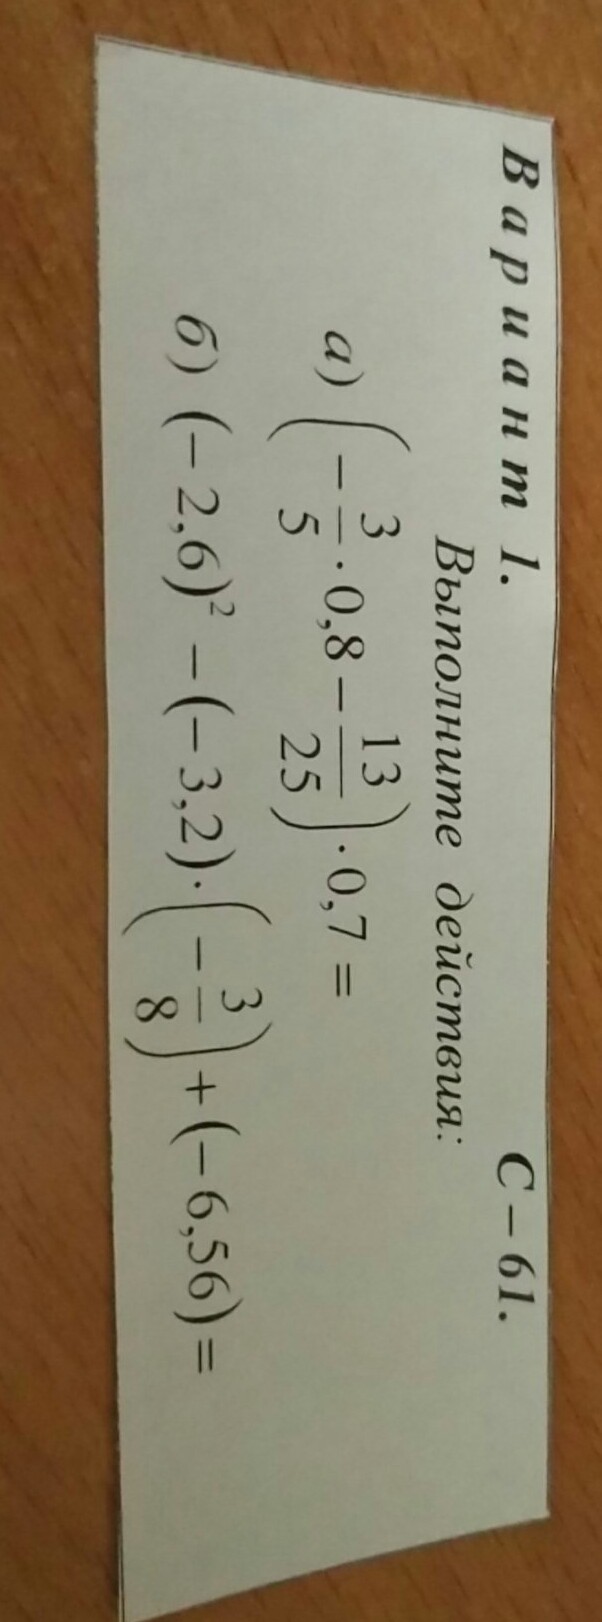 Вариант 1. С – 61.
Выполните действия:
а) (– 3/5 · 0,8 – 13/25) · 0,7 =
б) (– 2,6)² – (– 3,2) · (– 3/8) + (– 6,56) =